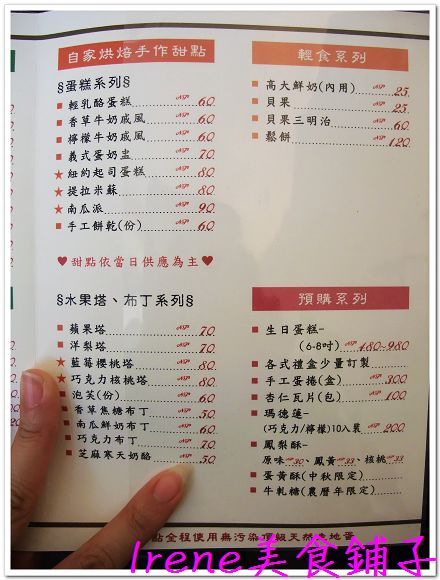 自家烘焙手作甜點
§蛋糕系列§
輕乳酪蛋糕 NT 60
香草牛奶戚風 NT 60
檸檬牛奶戚風 NT 60
義式蛋奶盅 NT 70
★紐約起司蛋糕 NT 80
★提拉米蘇 NT 80
★南瓜派 NT 90
手工餅乾(份) NT 60
♥甜點依當日供應為主♥
§水果塔、布丁系列§
蘋果塔 NT 70
洋梨塔 NT 70
★藍莓櫻桃塔 NT 80
★巧克力核桃塔 NT 80
泡芙(份) NT 60
香草焦糖布丁 NT 50
南瓜鮮奶布丁 NT 60
巧克力布丁 NT 70
芝麻寒天奶酪 NT 50
輕食系列
高大鮮奶(內用) NT 25
貝果 NT 25
貝果三明治 NT 60
鬆餅 NT 120
預購系列
生日蛋糕-
(6-8吋) NT 480~980
各式禮盒少量訂製
手工蛋捲(盒) NT 300
杏仁瓦片(包) NT 100
瑪德蓮-
(巧克力/檸檬)10入裝 NT 200
鳳梨酥-
原味 NT 30、鳳黃 NT 33、核桃 NT 33
蛋黃酥(中秋限定)
牛軋糖(農曆年限定)
點全程使用無污染頂級天然食地蛋
Irene美食鋪子